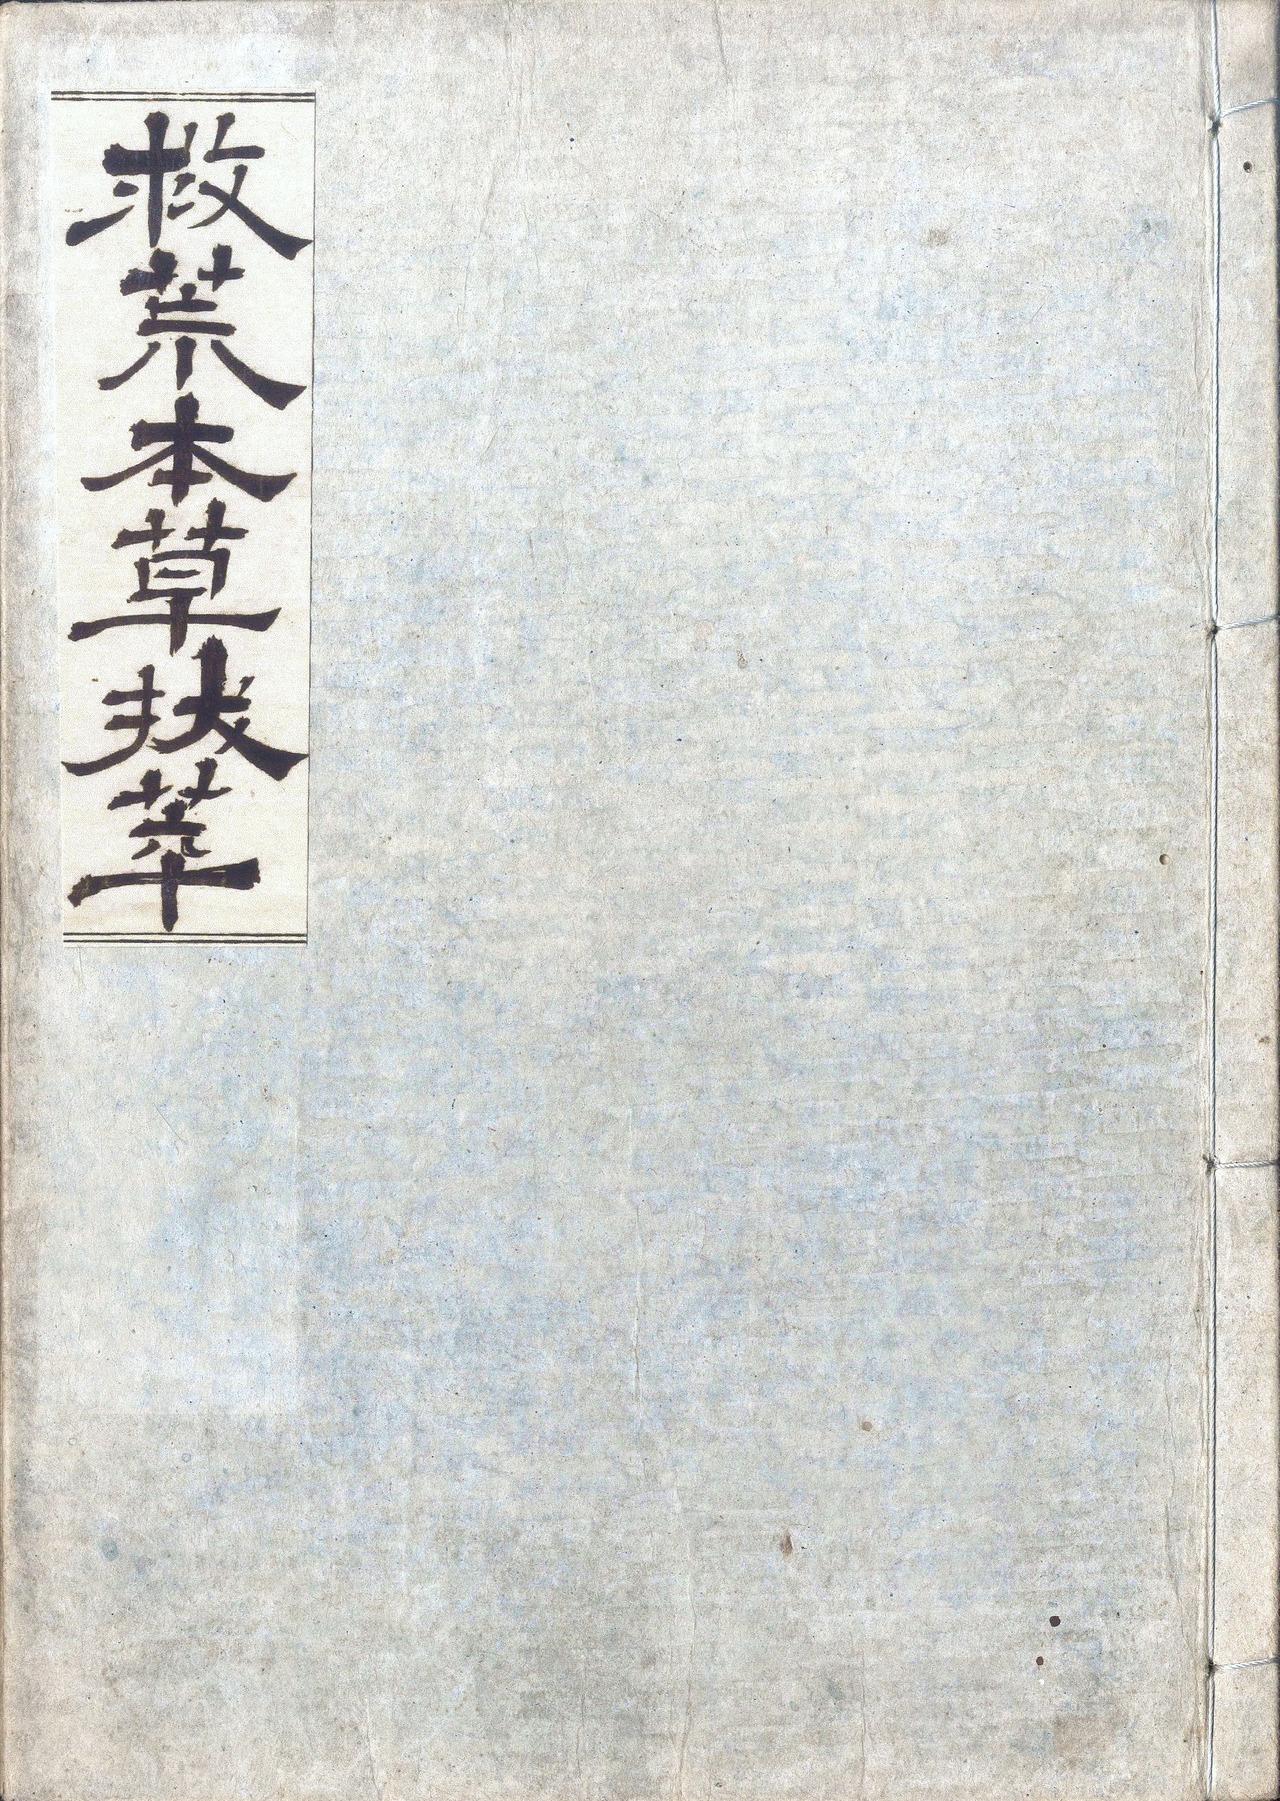 救荒本草抜萃